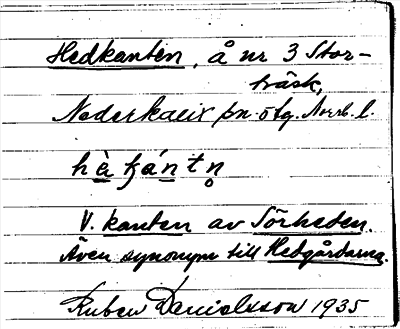 Hedkanten, å nr 3 Stor-
träsk,
Nederkalix sn. ötg. Norrb. l.
hὰ ʈántn̥
V. kanten av Sörheden.
Även synonym till Hedgårdarna.
Ruben Danielsson 1935